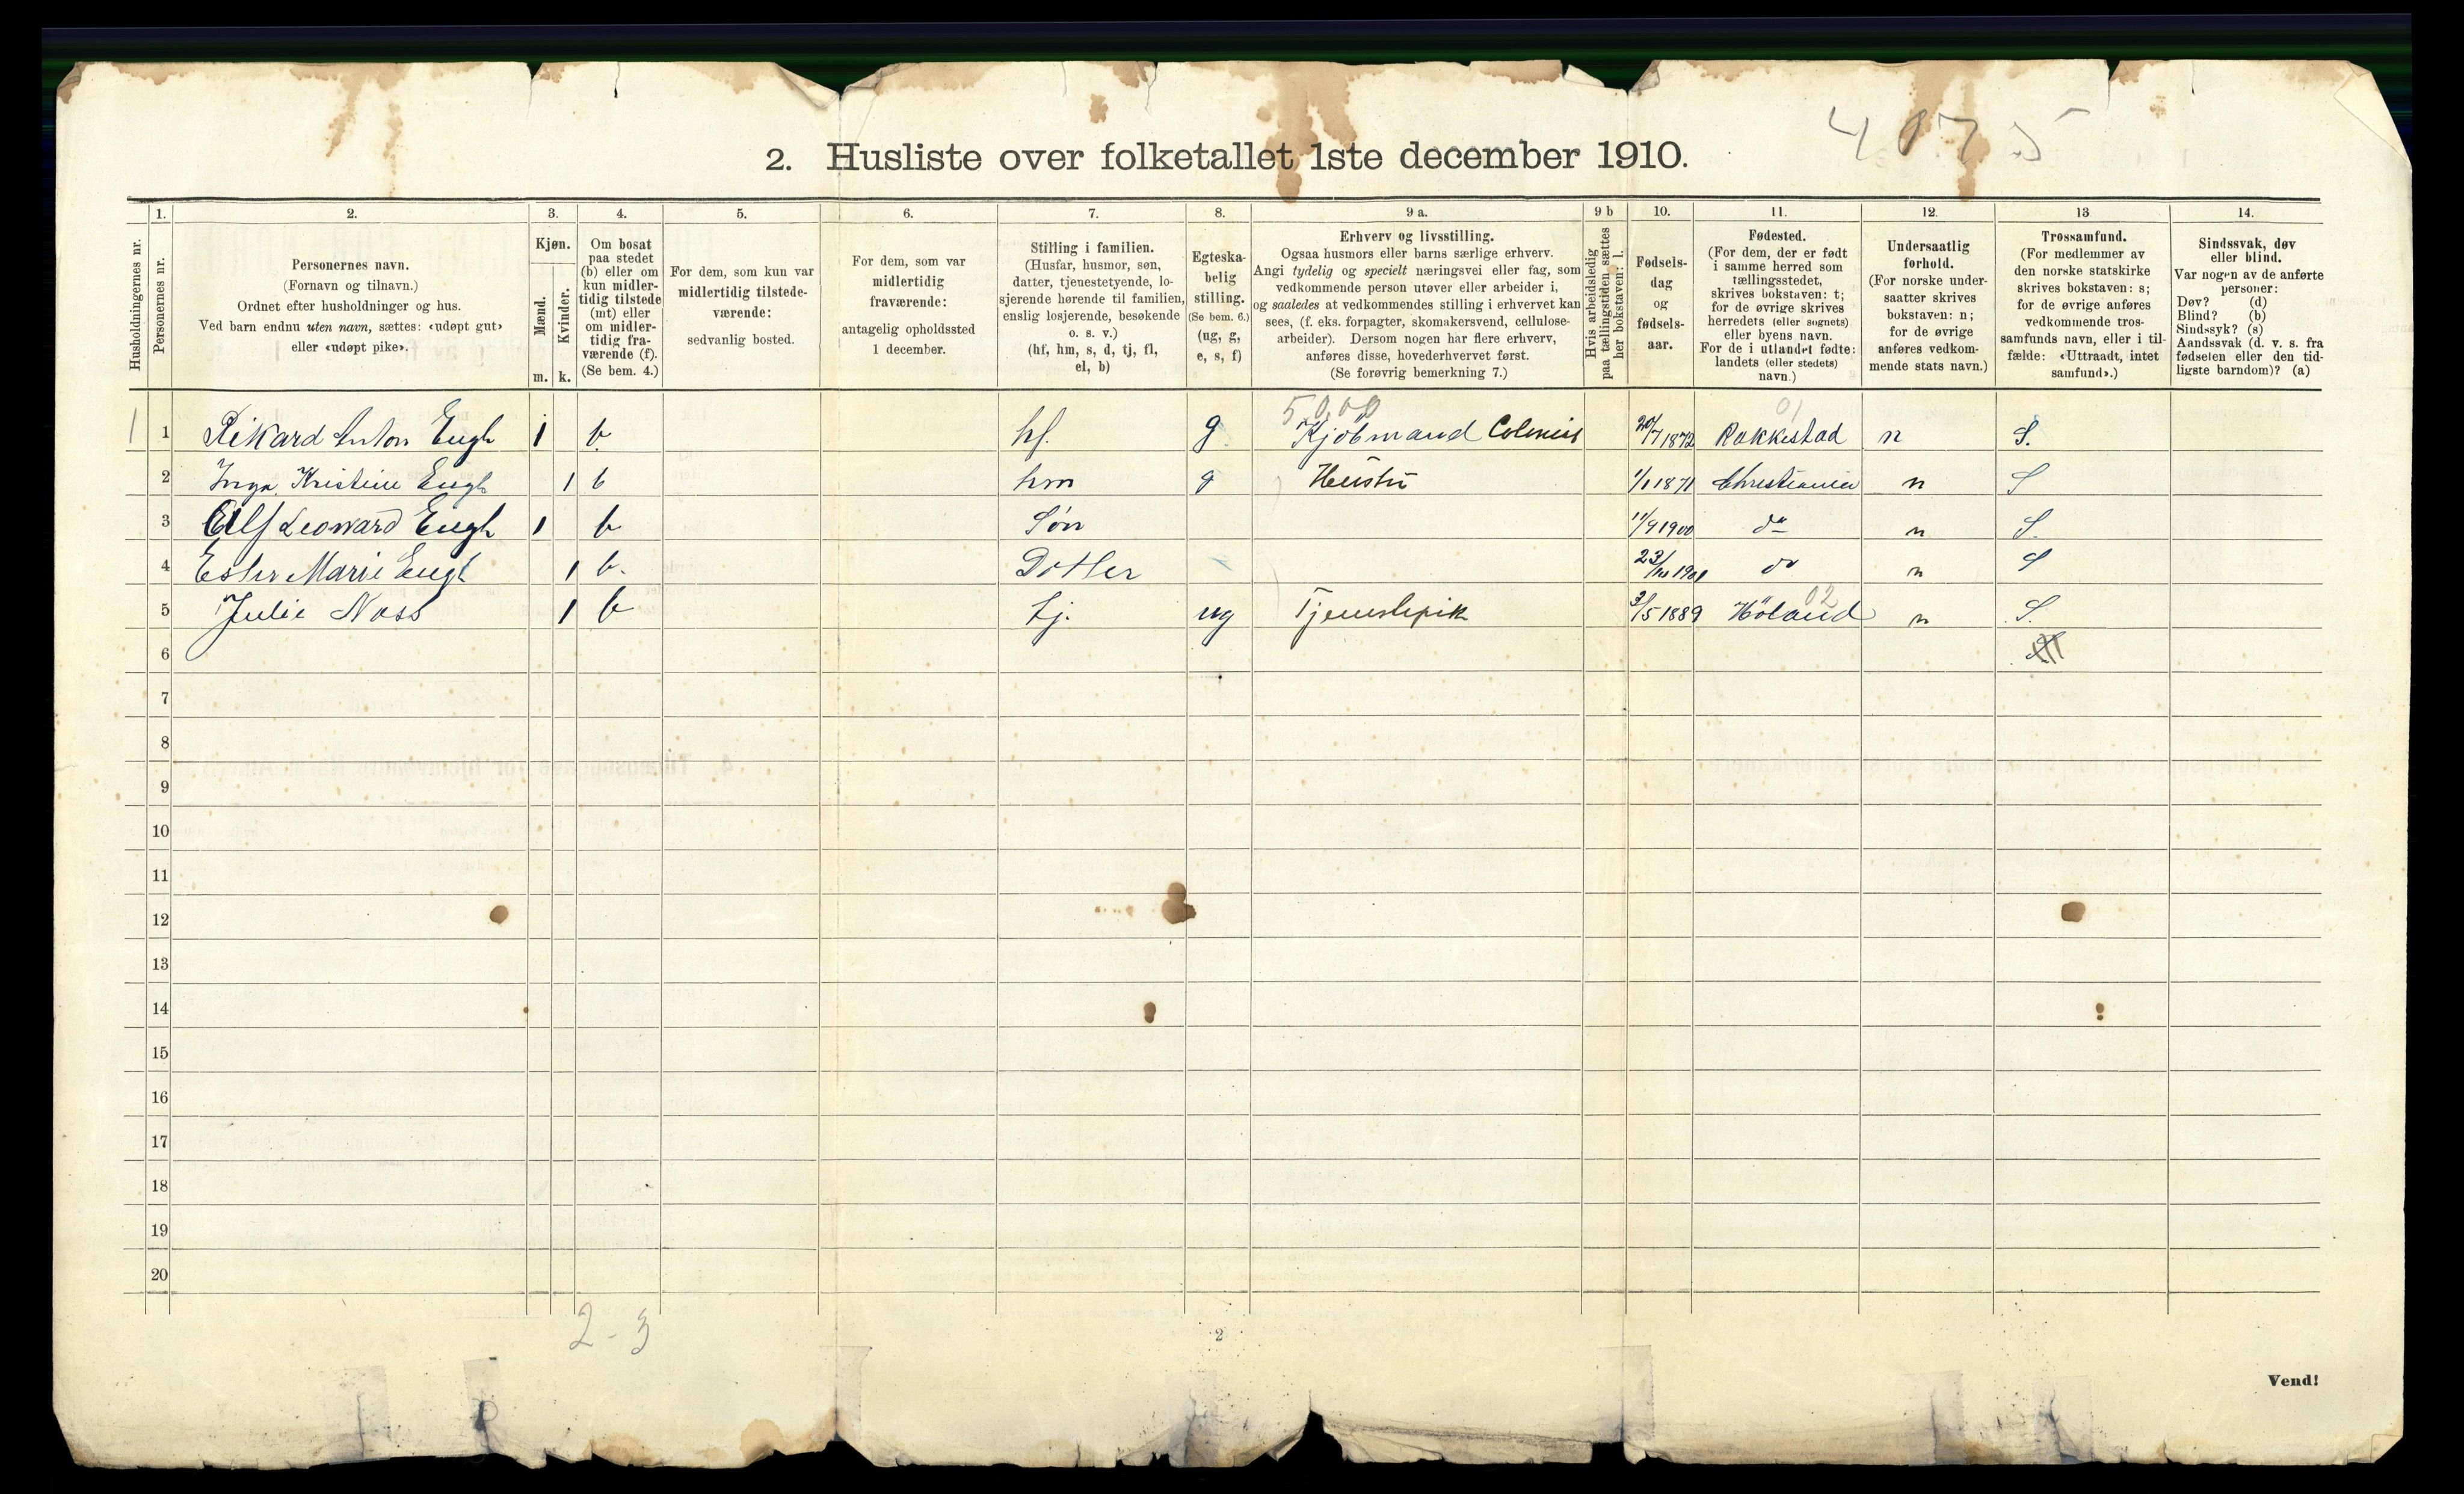 4075
2. Husliste over folketallet 1ste december 1910.
1. 2. 3. 4. 5. 6. 7. 8. 9 a. 9 b 10. 11. 12. 13 14.
Husholdningernes nr.
Personernes nr.
Personernes navn.
(Fornavn og tilnavn.)
Ordnet efter husholdninger og hus.
Ved barn endnu uten navn, sættes: «udøpt gut»
eller «udøpt pike».
Kjøn.
Mænd.
Kvinder.
m. k.
Om bosat
paa stedet
(b) eller om
kun midler-
tidig tilstede
(mt) eller
om midler-
tidig fra-
værende (f).
(Se bem. 4.)
For dem, som kun var
midlertidig tilstede-
værende:
sedvanlig bosted.
For dem, som var
midlertidig
fraværende:
antagelig opholdssted
1 december.
Stilling i familien.
(Husfar, husmor, søn,
datter, tjenestetyende, lo-
sjerende hørende til familien,
enslig losjerende, besøkende
o. s. v.)
(hf, hm, s, d, tj, fl,
el, b)
Egteska-
belig
stilling.
(Se bem. 6.)
(ug, g,
e, s, f)
Erhverv og livsstilling.
Ogsaa husmors eller barns særlige erhverv.
Angi tydelig og specielt næringsvei eller fag, som
vedkommende person utøver eller arbeider i,
og saaledes at vedkommendes stilling i erhvervet kan
sees, (f. eks. forpagter, skomakersvend, cellulose-
arbeider). Dersom nogen har flere erhverv,
anføres disse, hovederhvervet først.
(Se forøvrig bemerkning 7.)
Hvis arbeidsledig
paa tællingstiden sættes
her bokstaven: l.
Fødsels-
dag
og
fødsels-
aar.
Fødested.
(For dem, der er født
i samme herred som
tællingsstedet,
skrives bokstaven: t;
for de øvrige skrives
herredets (eller sognets)
eller byens navn.
For de i utlandet fødte:
landets (eller stedets)
navn.)
Undersaatlig
forhold.
(For norske under-
saatter skrives
bokstaven: n;
for de øvrige
anføres vedkom-
mende stats navn.)
Trossamfund.
(For medlemmer av
den norske statskirke
skrives bokstaven: s;
for de øvrige anføres
vedkommende tros-
samfunds navn, eller i til-
fælde: «Uttraadt, intet
samfund».)
Sindssvak, døv
eller blind.
Var nogen av de anførte
personer:
Døv? (d)
Blind? (b)
Sindssyk? (s)
Aandssvak (d. v. s. fra
fødselen eller den tid-
ligste barndom)? (a)
5000 01
1 1 Rikard Anton Engh 1 b hf. g Kjöbmand Colonial 20/7 1872 Rakkestad n S.
2 Inga Kristine Engh 1 b hm g Hustru 1/1 1871 Christiania n S
3 Alf Leonard Engh 1 b Søn 11/9 1900 do n S.
4 Ester Marie Engh 1 b. Dotter 23/10 1901 do n S
02
5 Julie Noss 1 b tj. ug Tjenestepik 3/5 1889 Höland n S.
6
7
8
9
10
11
12
13
14
15
16
17
18
19
20
2-3
2
Vend!